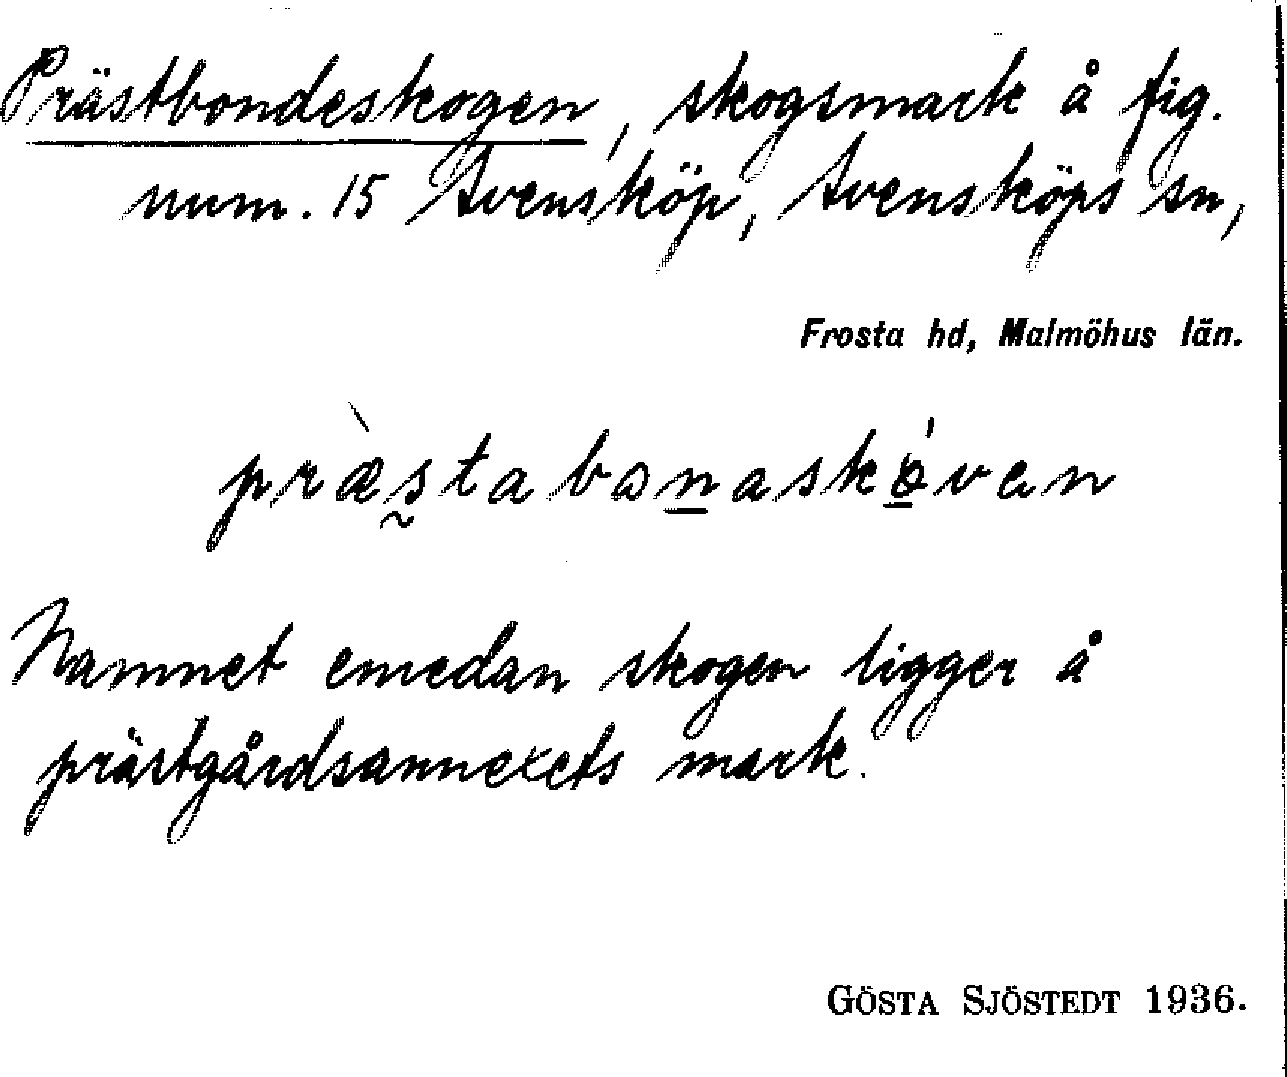 Prästbondeskogen, skogsmark å fig.
num. 15 Svensköp, Svensköps sn,
Frosta hd, Malmöhus län.
præ̀s̰tabon̲askó̲ven
Namnet emedan skogen ligger å
prästgårdsannexets mark.
GÖSTA SJÖSTEDT 1936.